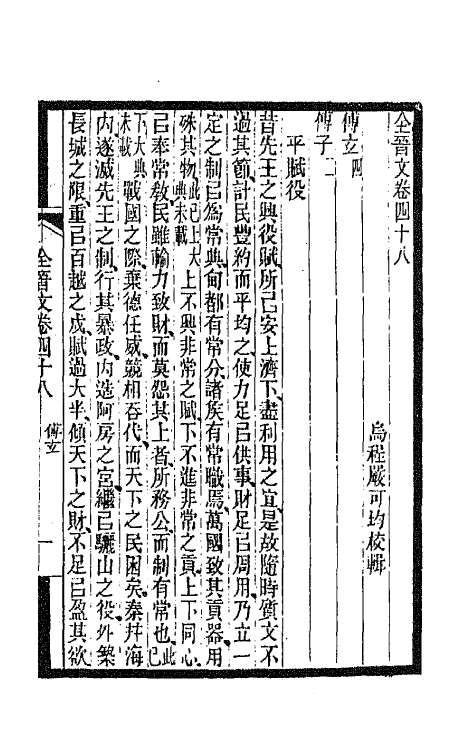 全晉文卷四十八
烏程嚴可均校輯
傅玄四
傅子二
平賦役
昔先王之興役賦所㠯安上濟下盡利用之宜是故隨時質文不
過其節計民豐約而平均之使力足㠯供事財足㠯周用乃立一
定之制㠯為常典甸都有常分諸侯有常職焉萬國致其貢器用
殊其物此已上大典未載上不興非常之賦下不進非常之貢上下同心
㠯奉常教民雖輸力致財而莫怨其上者所務公而制有常也此已
下大典未載戰國之際棄德任威競相吞代而天下之民困矣秦并海
內遂滅先王之制行其暴政內造阿房之宮繼㠯驪山之役外築
長城之限重㠯百越之戍賦過大半傾天下之財不足㠯盈其欲
全晉文卷四十八
傅玄
一